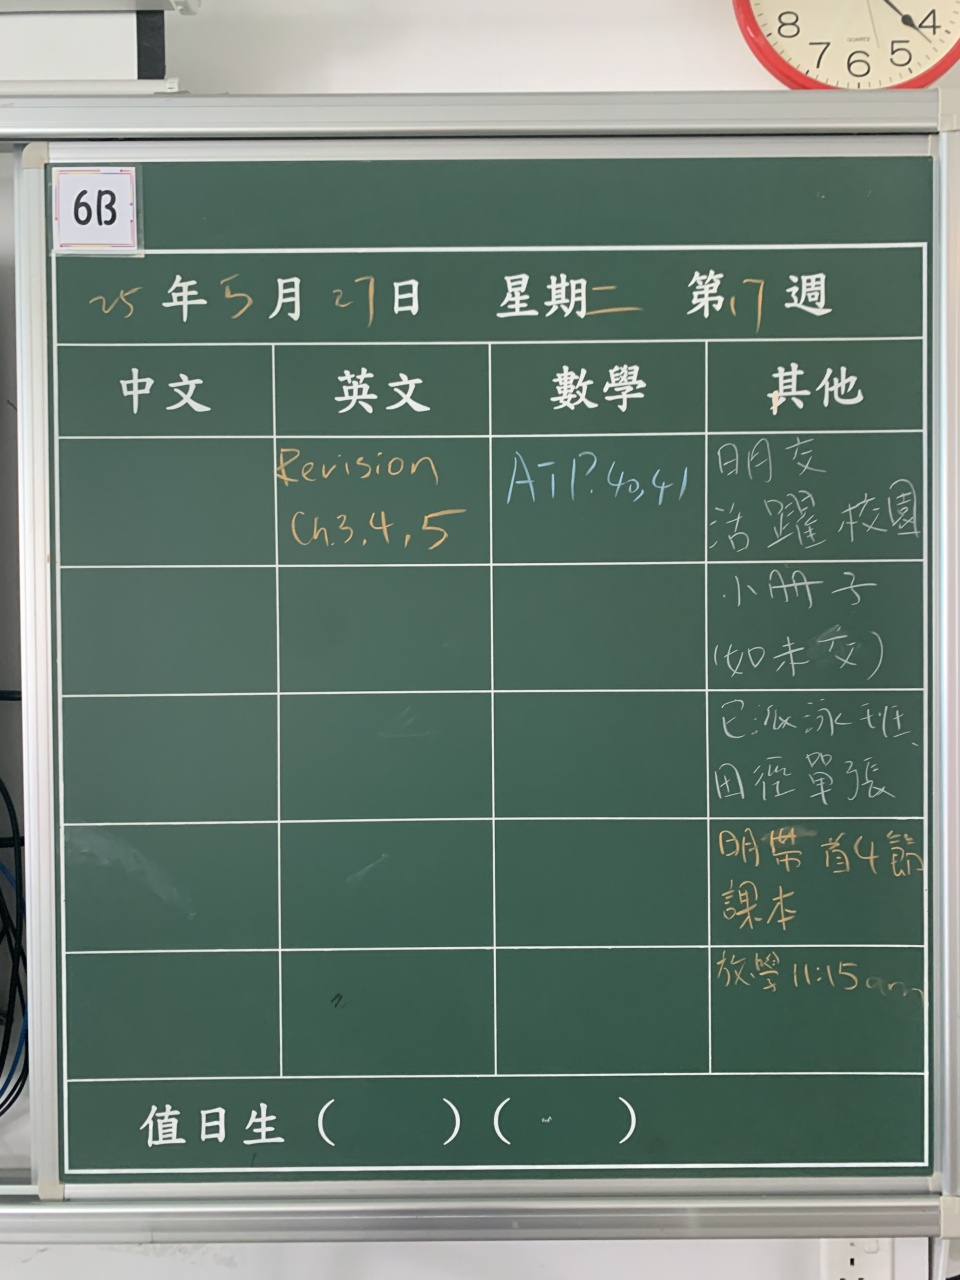 8 7 6 5 4
QUARTZ
6B
25年5月27日 星期二 第17週
中文 英文 數學 其他
Revision
Ch.3,4,5
ATP.40,41
明交
活躍校園
小冊子
(如未交)
已派泳班、
田徑單張
明帶首4節
課本
放學11:15am
值日生( )( )